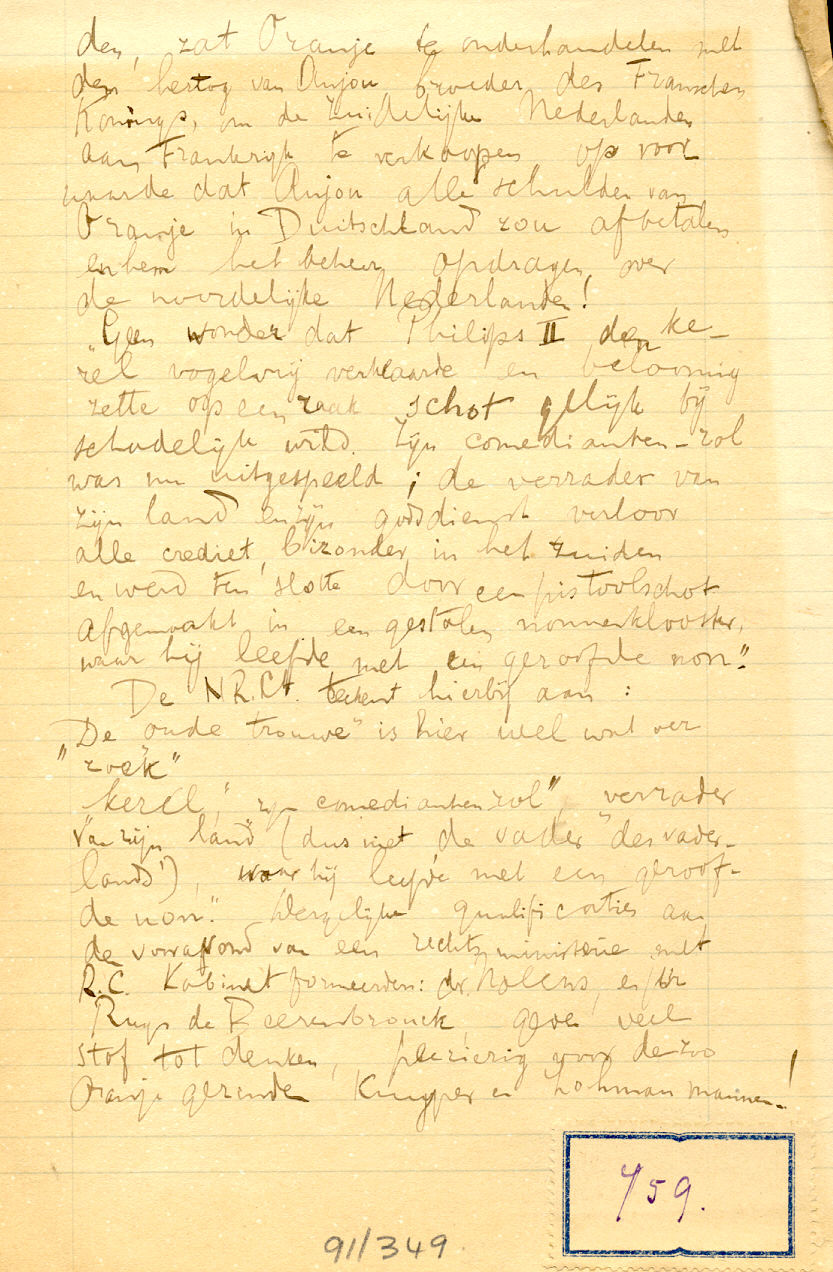 den, zat Oranje te onderhandelen met
den hertog van Anjou, broeder des Franschen
Konings, om de zuidelijke Nederlanden
aan Frankrijk te verkoopen op voor
waarde dat Anjou alle schulden van
Oranje in Duitschland zou afbetalen
en hem het beheer opdragen over
de noordelijke Nederlanden!
„Geen wonder dat Philips II den ke-
rel vogelvrij verklaarde en belooning
zette op een raak schot gelijk bij
schadelijk wild. Zijn comedianten-rol
was nu uitgespeeld; de verrader van
zijn land en zijn godsdienst verloor
alle crediet, bizonder in het zuiden
en werd ten slotte door een pistoolschot
afgemaakt in een gestolen nonnenklooster,
waar hij leefde met een geroofde non."
De N.R.Ct. teekent hierbij aan:
„De oude trouwe" is hier wel wat ver
"zoek"
kerel," zijn comedianten rol", verrader
van zijn land (dus niet de vader des vader-
lands!), waar hij leefde met een geroof-
de non." Dergelijke qualificaties aan
de vooravond van een rechts ministerie met
R.C. Kabinet formeerders: dr. Nolens, en
Ruys de Beerenbrouck, geve veel
stof tot denken, plezierig voor de zoo
Oranje gezinde Kuyper en Lohman mannen!
759.
91/349